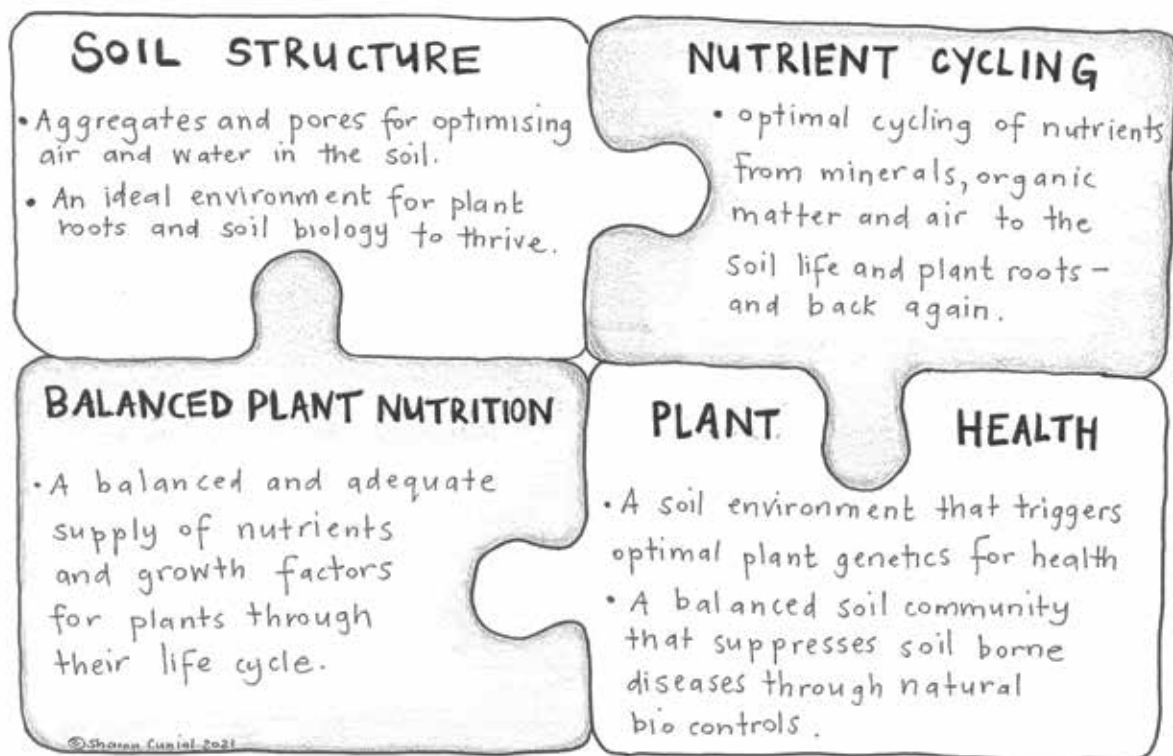 SOIL STRUCTURE
• Aggregates and pores for optimising
air and water in the soil.
• An ideal environment for plant
roots and soil biology to thrive.
NUTRIENT CYCLING
• optimal cycling of nutrients
from minerals, organic
matter and air to the
soil life and plant roots –
and back again.
BALANCED PLANT NUTRITION
• A balanced and adequate
supply of nutrients
and growth factors
for plants through
their life cycle.
©Sharon Cunial 2021
PLANT HEALTH
• A soil environment that triggers
optimal plant genetics for health
• A balanced soil community
that suppresses soil borne
diseases through natural
bio controls.